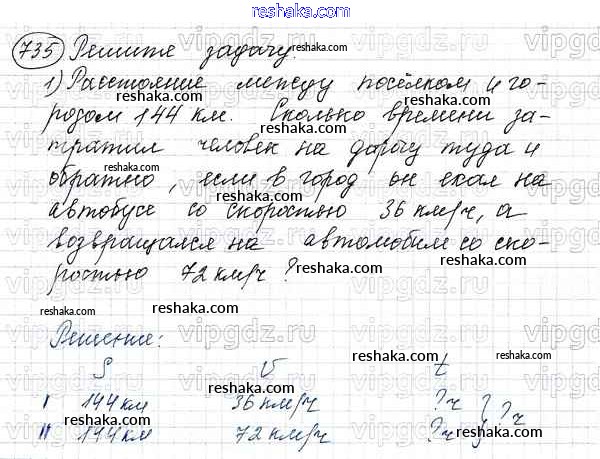 reshaka.com
735 Решите задачу. reshaka.com
1) Расстояние между посёлком и го-
reshaka.com
родом 144 км. Сколько времени за-
reshaka.com
тратил человек на дорогу туда и
reshaka.com
обратно, если в город он ехал на
reshaka.com
автобусе со скоростью 36 км/ч, а
reshaka.com
возвращался на автомобиле со ско-
reshaka.com
ростью 72 км/ч?
reshaka.com
Решение:
S V t
reshaka.com
I 144 км 36 км/ч ?ч } ?ч
reshaka.com
II 144 км 72 км/ч ?ч
vipgdz.ru